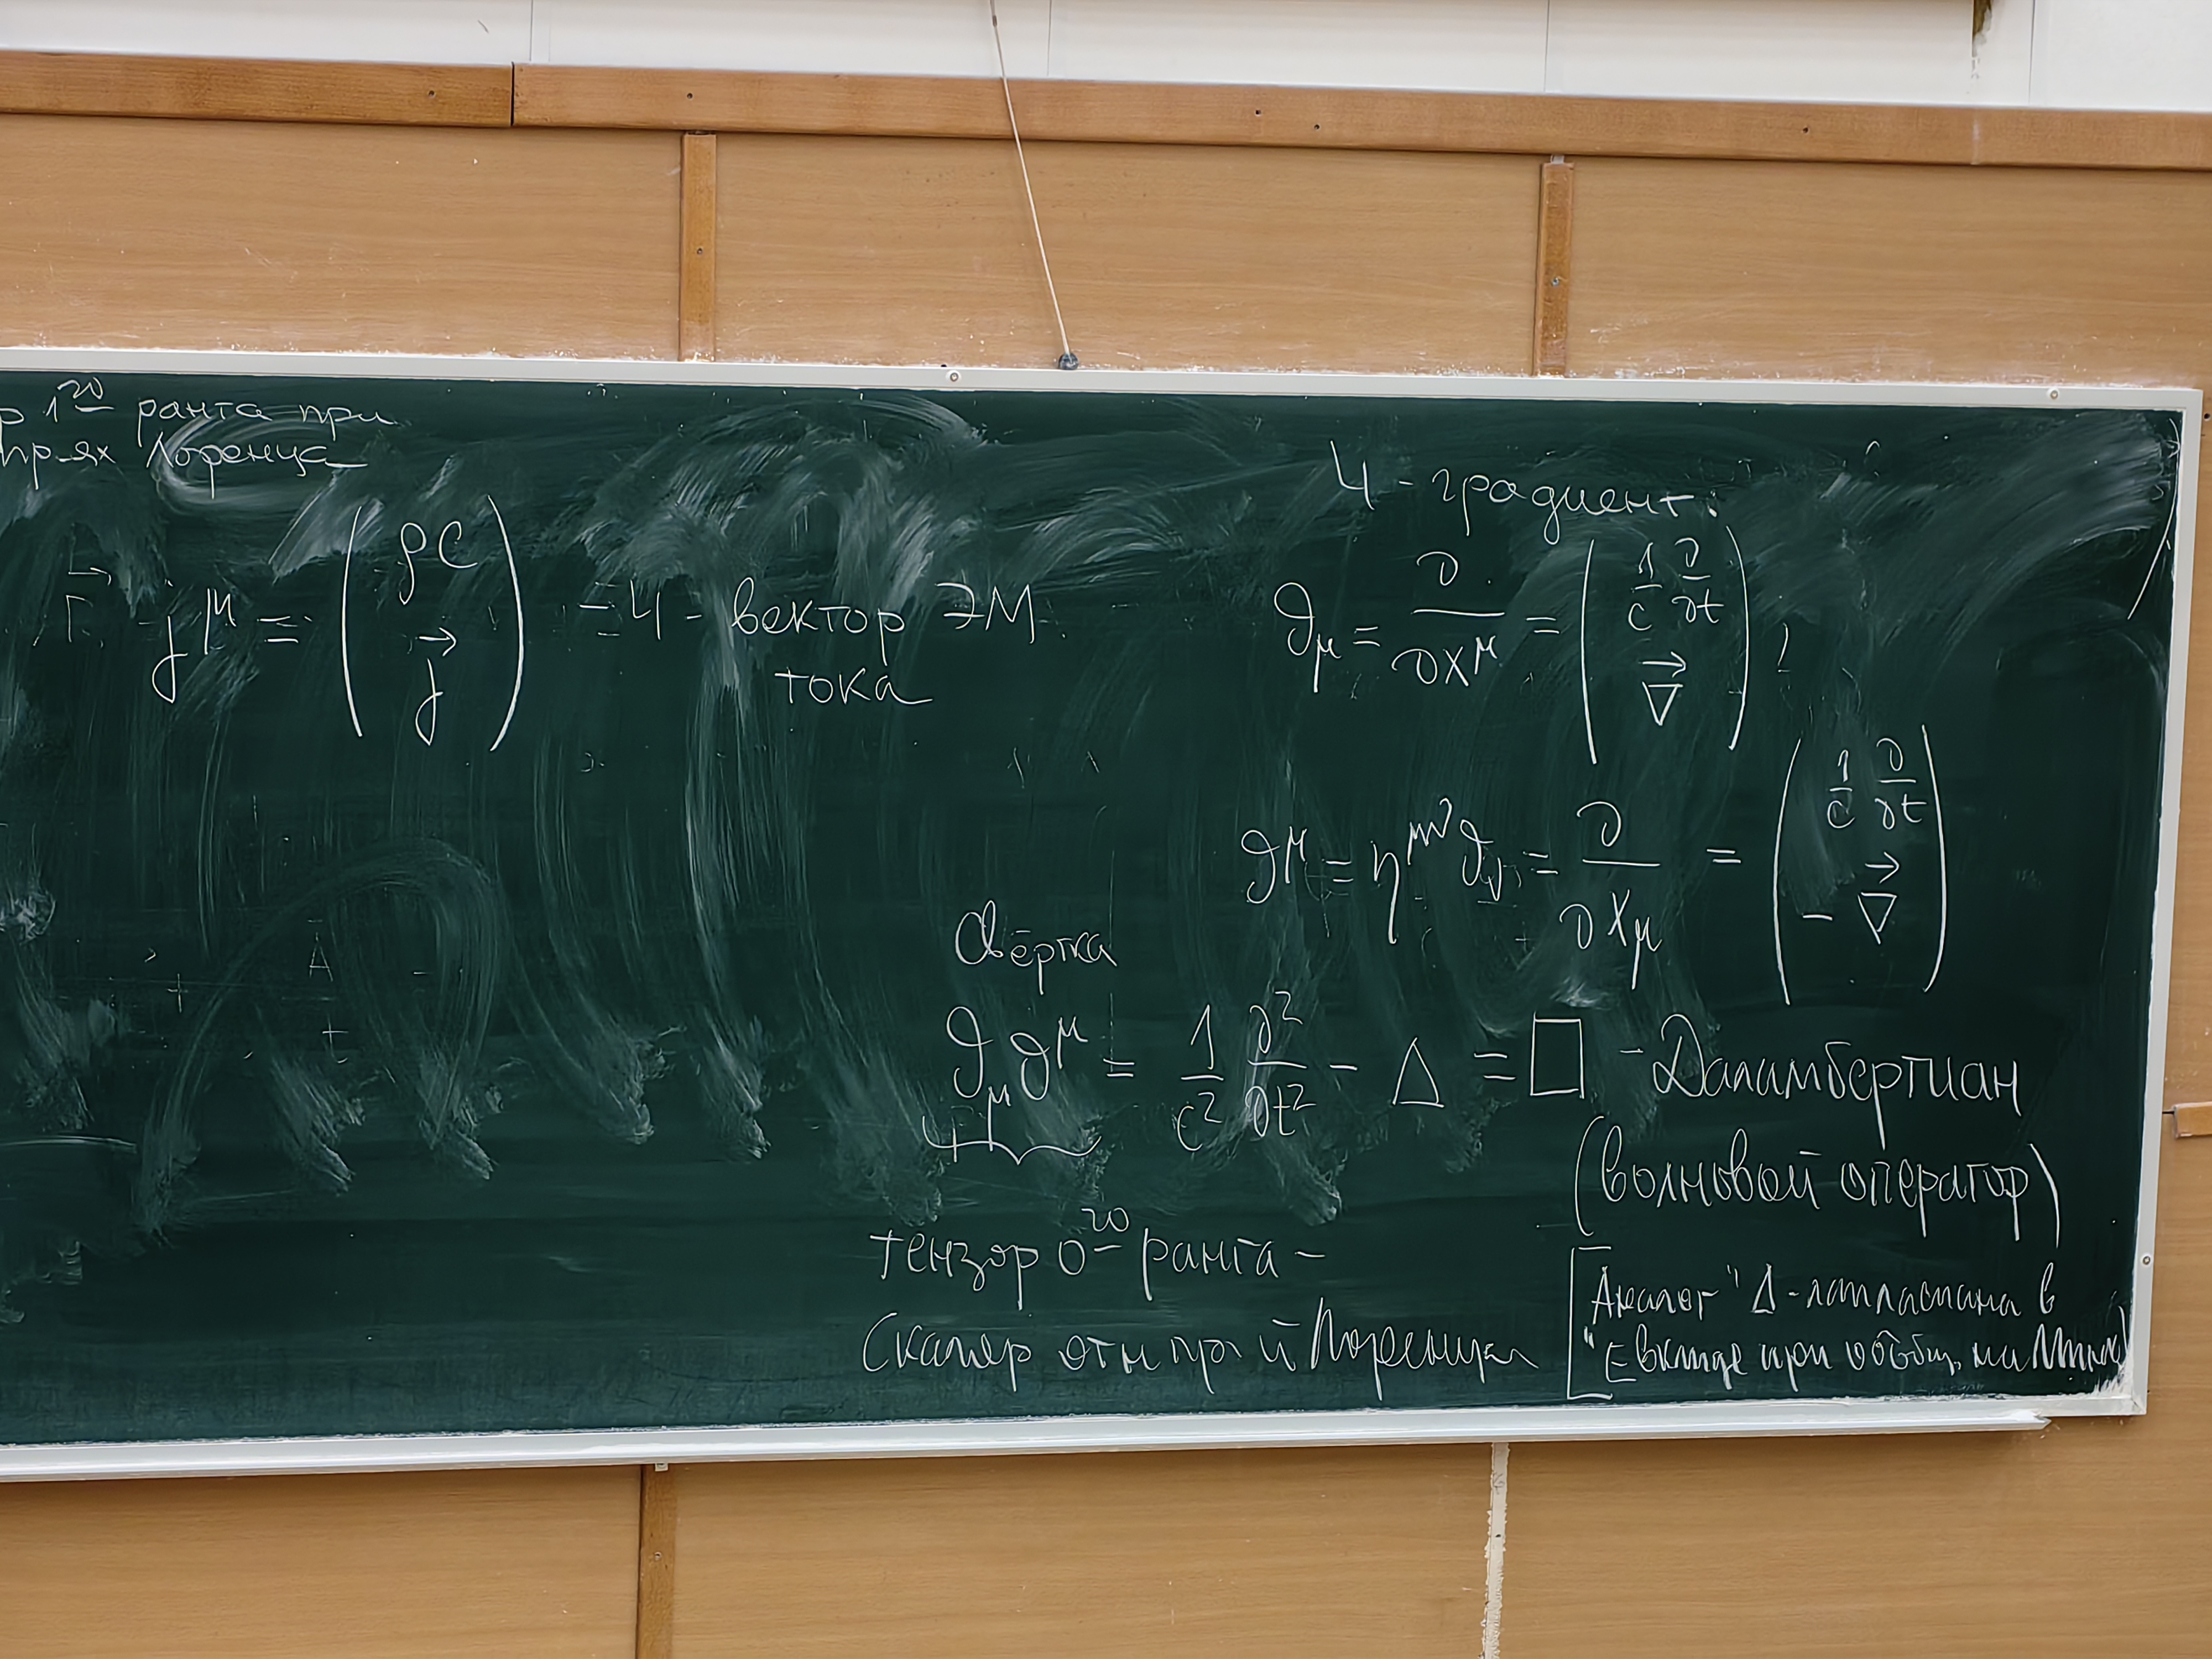 1го ранга при
пр-ях Лоренца
j^μ = ( ρc \vec{j} ) - 4-вектор ЭМ
тока
4-градиент:
∂_μ = ∂/∂x^μ = ( 1/c ∂/∂t \vec{∇} )
∂^μ = η^{μν} ∂_ν = ∂/∂x_μ = ( 1/c ∂/∂t -\vec{∇} )
Свёртка
∂_μ ∂^μ = 1/c² ∂²/∂t² - Δ ≡ □ - Даламбертиан
(волновой оператор)
тензор 0го ранга -
Скаляр отн пр-й Лоренца
[Аналог "Δ-лапласиана в
при обобщ. на